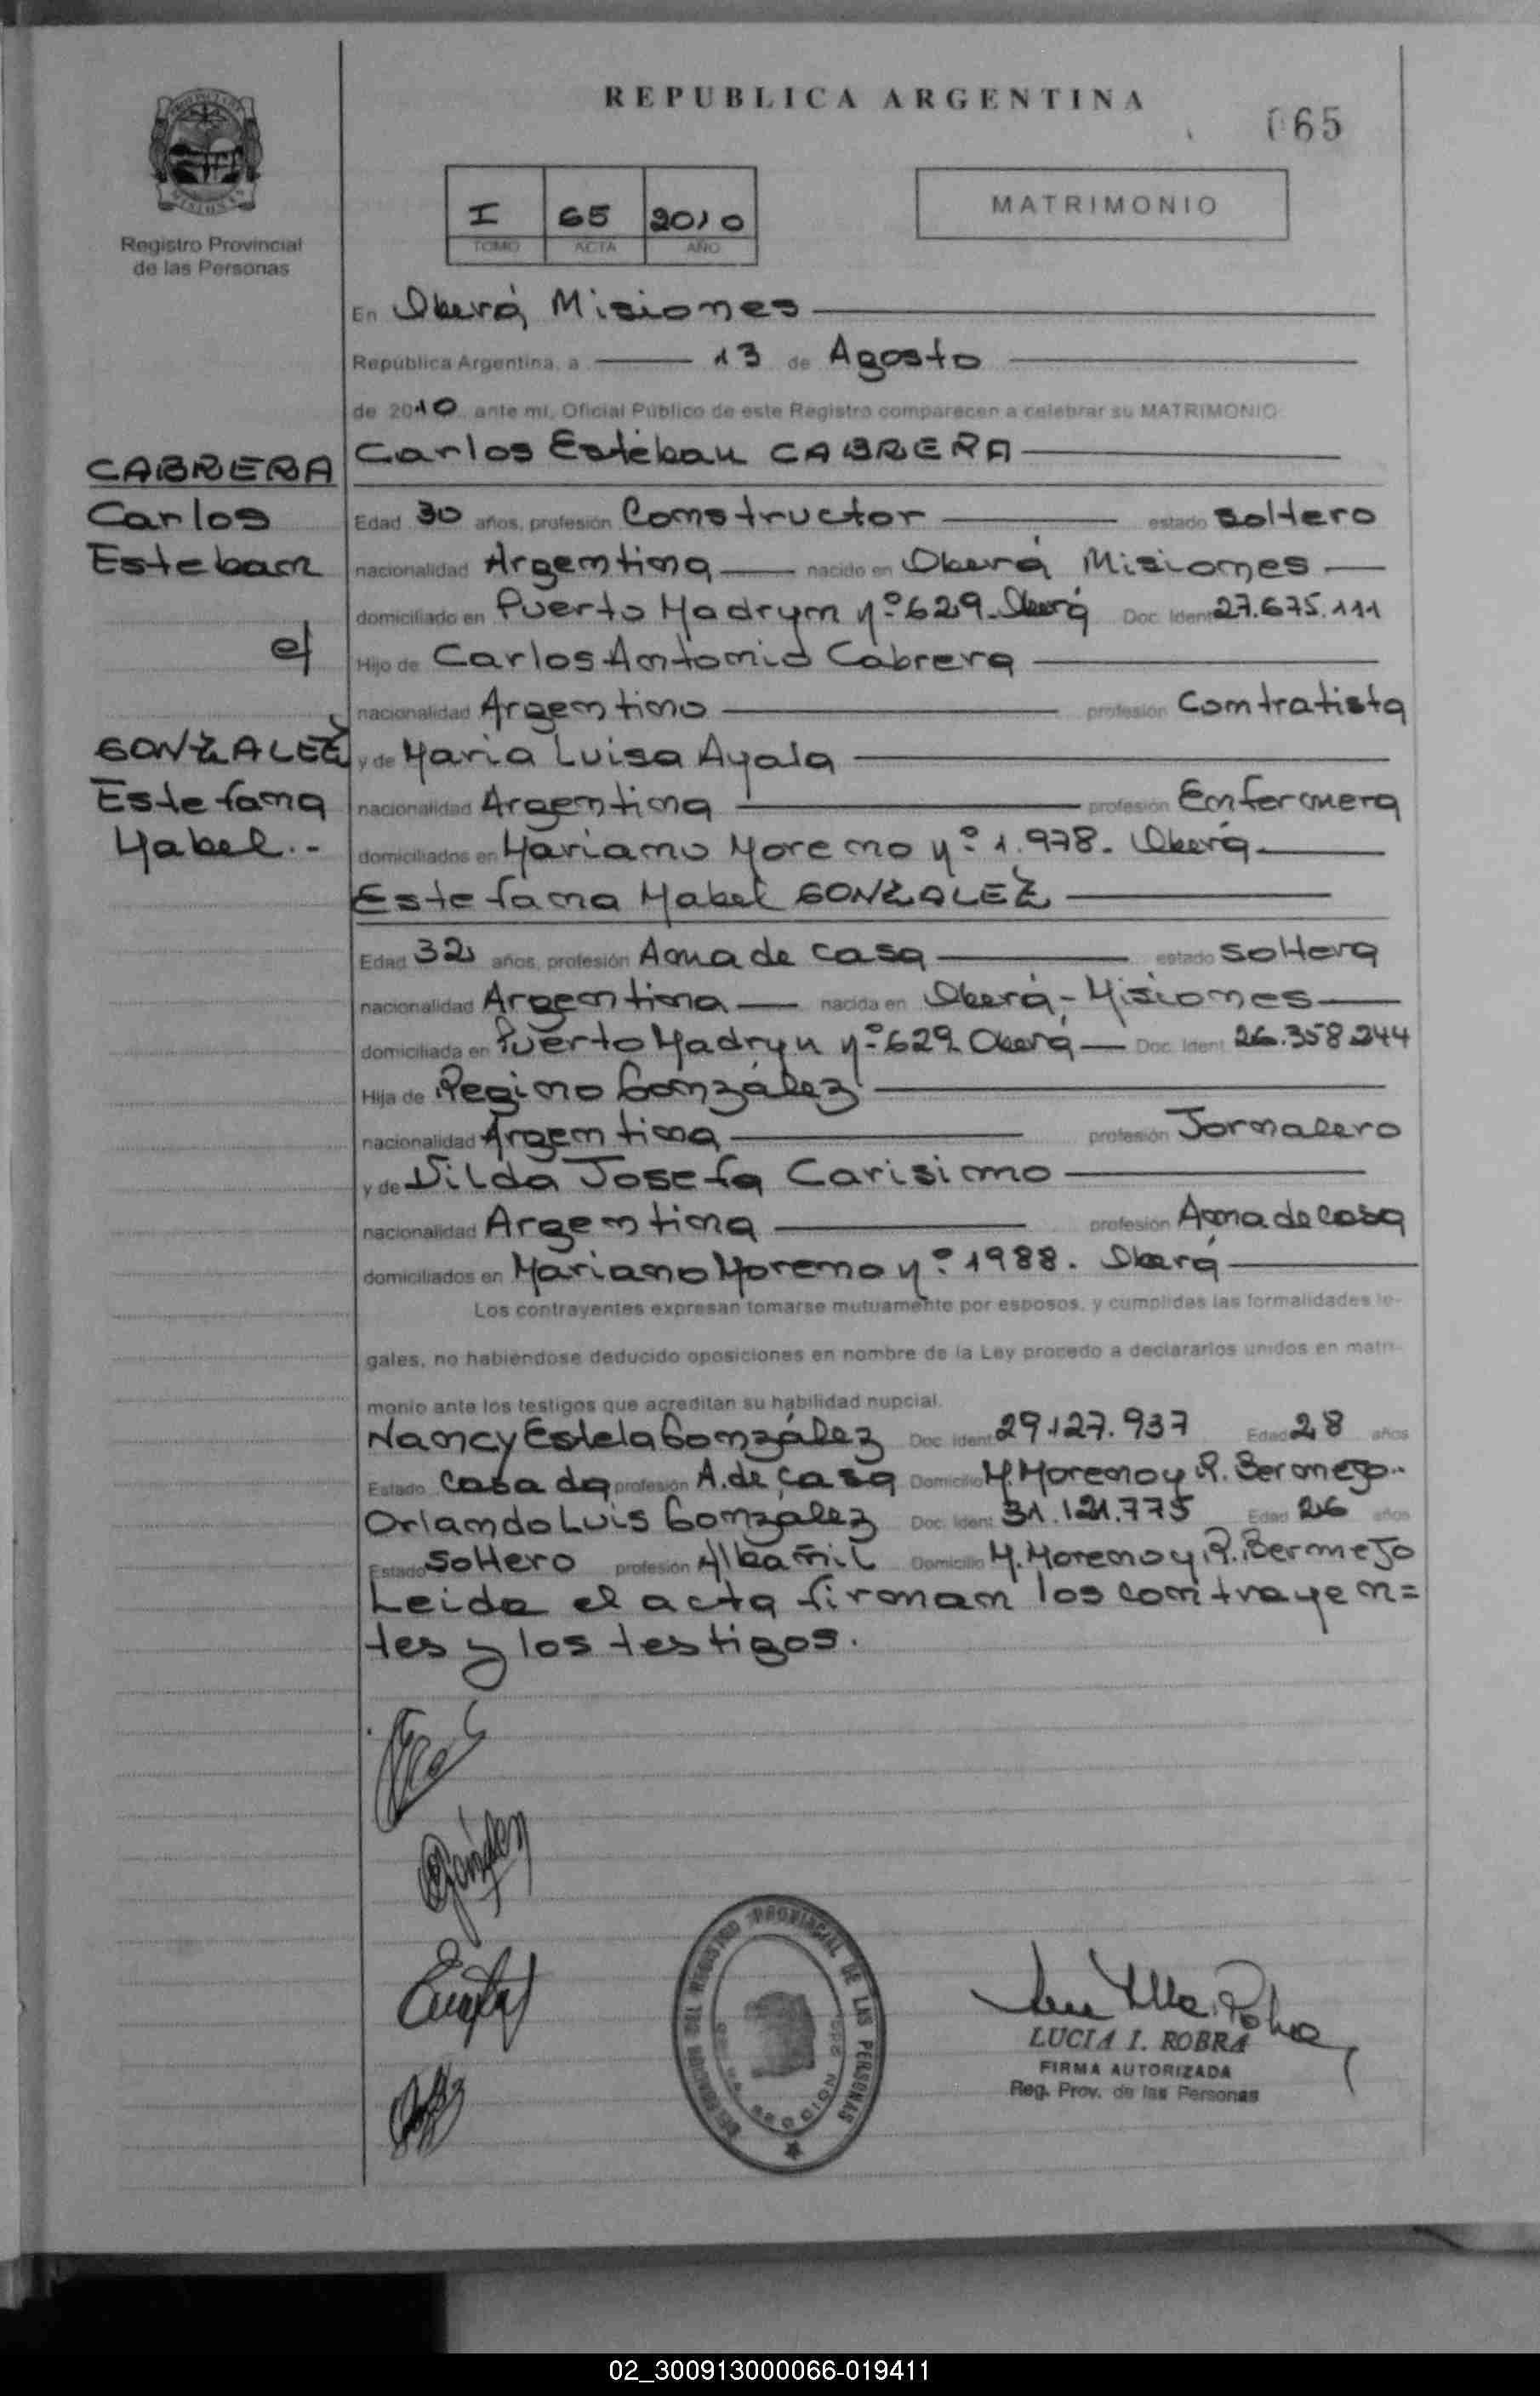 REPUBLICA ARGENTINA
065
I 65 2010
TOMO ACTA AÑO
MATRIMONIO
Registro Provincial
de las Personas
En Oberá, Misiones
República Argentina, a 13 de Agosto
de 2010, ante mí, Oficial Público de este Registro comparecen a celebrar su MATRIMONIO
Carlos Esteban CABRERA
CABRERA
Carlos
Esteban
c/
GONZALEZ
Estefana
Mabel.-
Edad 30 años, profesión Constructor estado soltero
nacionalidad Argentina nacido en Oberá Misiones
domiciliado en Puerto Madryn nº 629-Oberá Doc. Ident 27.675.111
Hijo de Carlos Antonio Cabrera
nacionalidad Argentino profesión Contratista
y de Maria Luisa Ayala
nacionalidad Argentina profesión Enfermera
domiciliados en Mariano Moreno nº 1.978. Oberá
Estefana Mabel GONZALEZ
Edad 32 años, profesión Ama de casa estado soltera
nacionalidad Argentina nacida en Oberá-Misiones
domiciliada en Puerto Madryn nº 629 Oberá Doc. Ident 26.358.244
Hija de Regino González
nacionalidad Argentina profesión Jornalero
y de Vilda Josefa Carisimo
nacionalidad Argentina profesión Ama de casa
domiciliados en Mariano Moreno nº 1988. Oberá
Los contrayentes expresan tomarse mutuamente por esposos, y cumplidas las formalidades le-
gales, no habiéndose deducido oposiciones en nombre de la Ley procedo a declararlos unidos en matri-
monio ante los testigos que acreditan su habilidad nupcial.
Nancy Estela González Doc. Ident 29.127.937 Edad 28 años
Estado Casada profesión A. de casa Domicilio M. Moreno y R. Bermejo.-
Orlando Luis González Doc. Ident 31.121.775 Edad 26 años
Estado Soltero profesión Albañil Domicilio M. Moreno y R. Bermejo
Leida el acta firman los contrayen=
tes y los testigos.
DEL REGISTRO PROVINCIAL DE LAS PERSONAS
LUCIA I. ROBRA
FIRMA AUTORIZADA
Reg. Prov. de las Personas
02_300913000066-019411